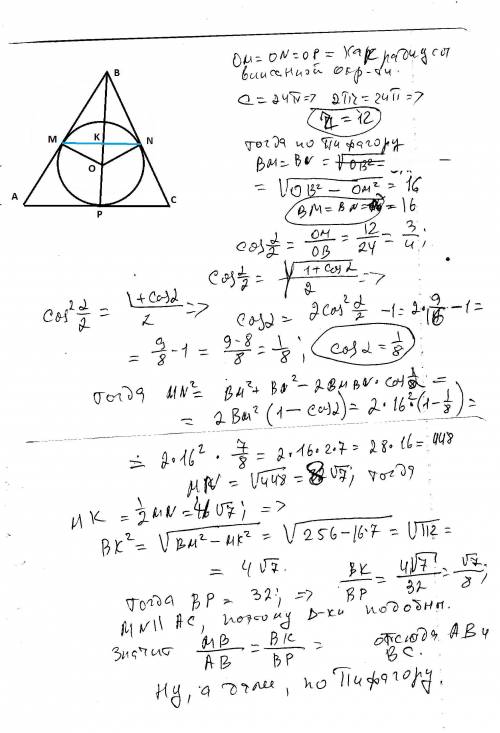 OM = ON = OP = как радиусы
вписанной окр-ти.
C = 24π => 2πr = 24π =>
r = 12
тогда по Пифагору
BM = BN = √OB²
= √OB² - OM² = 16
BM = BN = 16
cos α/2 = OM/OB = 12/24 = 3/4;
cos α/2 = √(1+cosα)/2 =>
cos² α/2 = (1+cosα)/2 =>
cosα = 2cos² α/2 - 1 = 2·9/16 - 1 =
= 9/8 - 1 = (9-8)/8 = 1/8; cosα = 1/8
тогда MN² = BM² + BN² - 2BM·BN·cos 1/8 =
= 2BM²(1-cosα) = 2·16²·(1-1/8) =
= 2·16²·7/8 = 2·16·2·7 = 28·16 = 448
MN = √448 = 8√7; тогда
MK = 1/2 MN = 4√7; =>
BK² = √BM² - MK² = √256-16·7 = √112 =
= 4√7.
тогда BP = 32; => BK/BP = 4√7/32 = √7/8;
MN || AC, поэтому Δ-ки подобны.
значит MB/AB = BK/BP = отсюда AB и
BC.
Ну, а далее, по Пифагору.
B
M
K
N
O
A
P
C